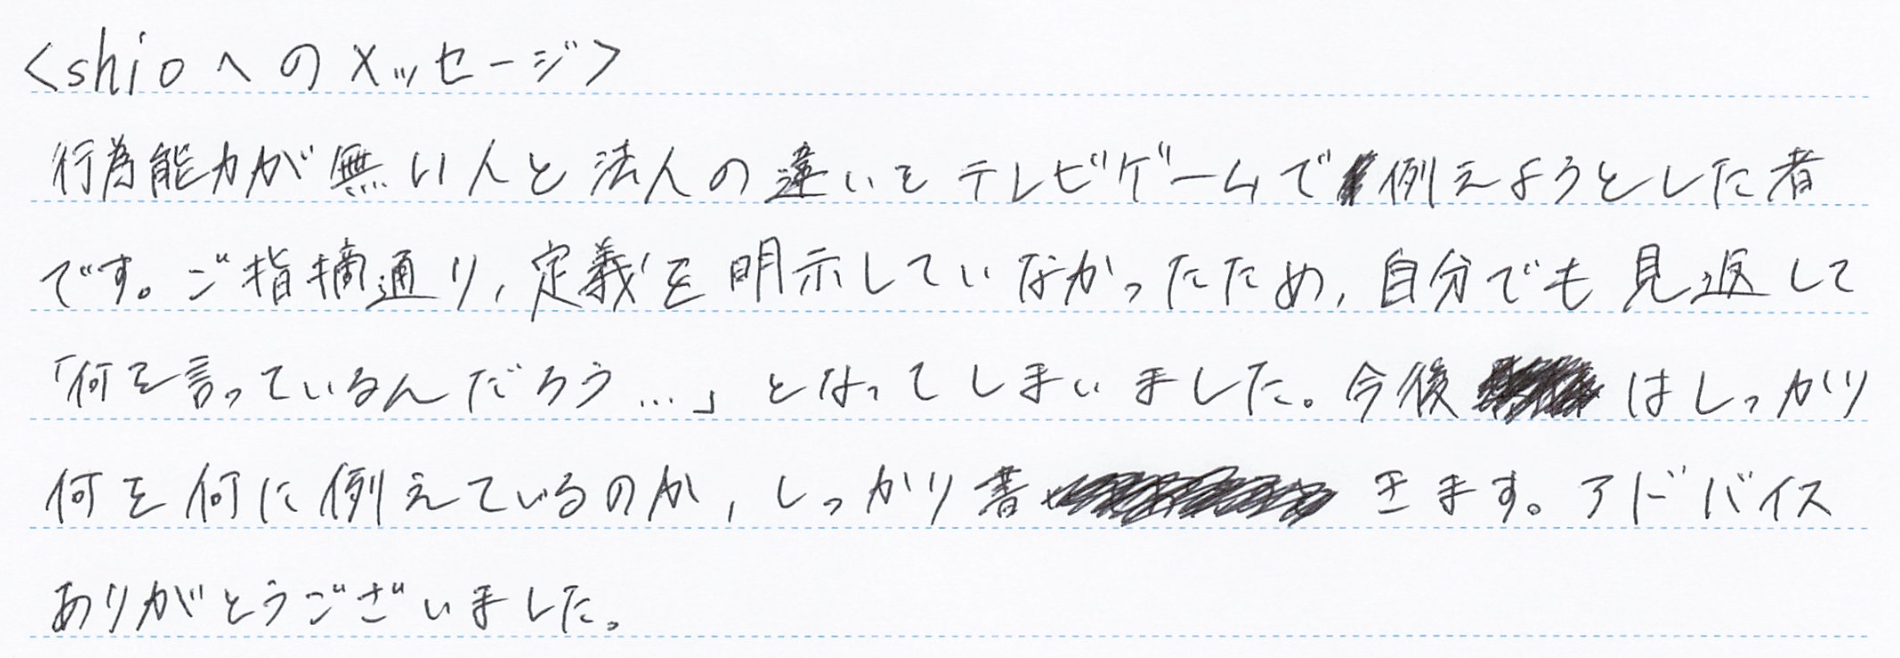 <shioへのメッセージ>
行為能力が無い人と法人の違いをテレビゲームで例えようとした者
です。ご指摘通り,定義を明示していなかったため,自分でも見返して
「何を言っているんだろう…」となってしまいました。今後はしっかり
何を何に例えているのか,しっかり書きます。アドバイス
ありがとうございました。